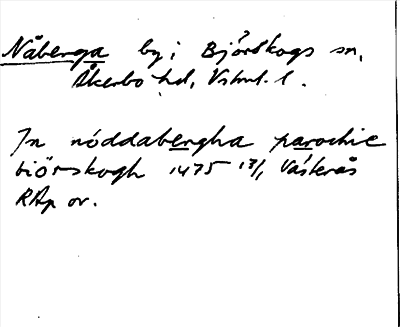 Nåberga by i Björskogs sn,
Åkerbo hd, Vstml. l.
In nóddabergha parochie
biórskogh 1475 13/1 Västerås
RAp or.